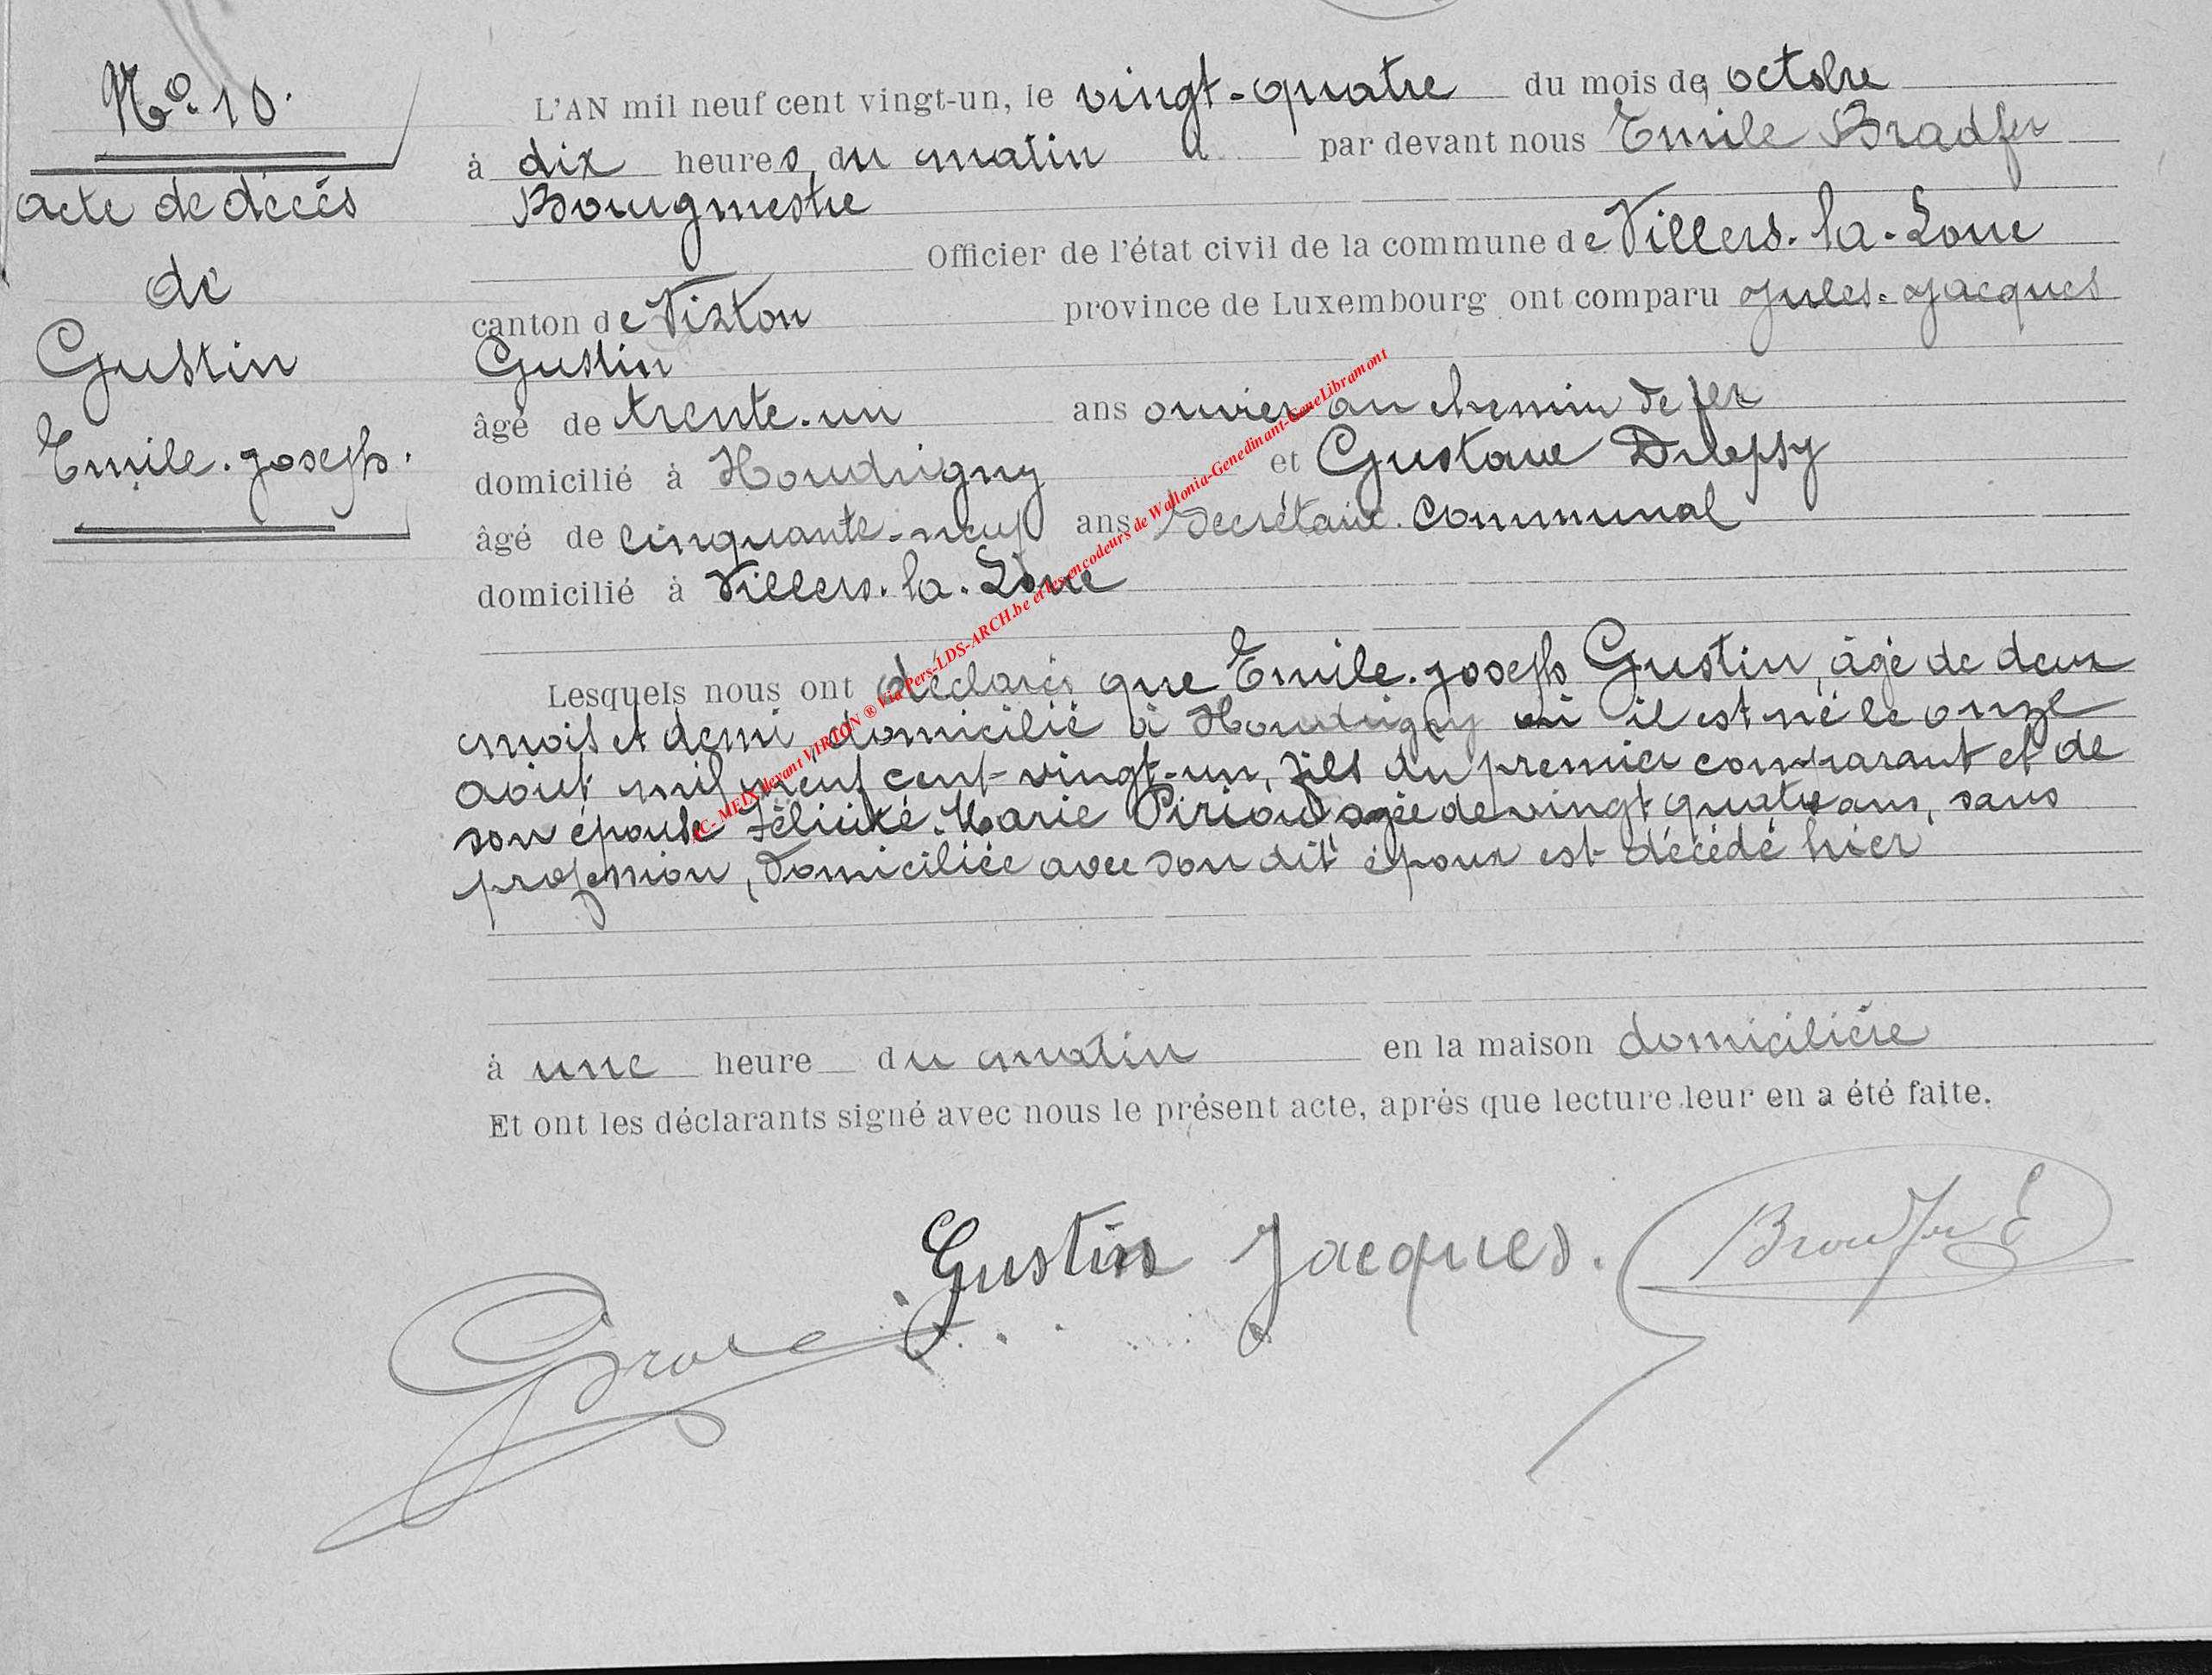 No. 10.
acte de décès
de
Gustin
Emile. Joseph.
L'AN mil neuf cent vingt-un, le vingt-quatre du mois de octobre
à dix heures du matin par devant nous Emile Bradfer
Bourgmestre
Officier de l'état civil de la commune de Villers-la-Loue
canton de Virton province de Luxembourg ont comparu Jules-Jacques
Gustin
âgé de trente-un ans ouvrier au chemin de fer
domicilié à Houdrigny et Gustave
âgé de cinquante-neuf ans Secrétaire communal
domicilié à Villers-la-Loue
Lesquels nous ont déclaré que Emile-Joseph Gustin, âgé de deux
mois et demi domicilié à Houdrigny où il est né le onze
aout mil neuf cent-vingt-un, fils du premier comparant et de
son épouse Félicité-Marie agée de vingt quatre ans, sans
profession, domiciliée avec son dit époux est décédé hier
à une heure du matin en la maison domicilière
Et ont les déclarants signé avec nous le présent acte, après que lecture leur en a été faite.
Gustin Jacques. Bradfer E
AC- MEIX devant VIRTON ® Via Pers-LDS-ARCH.be et les encodeurs de Wallonia-Genedinant-GeneLibramont